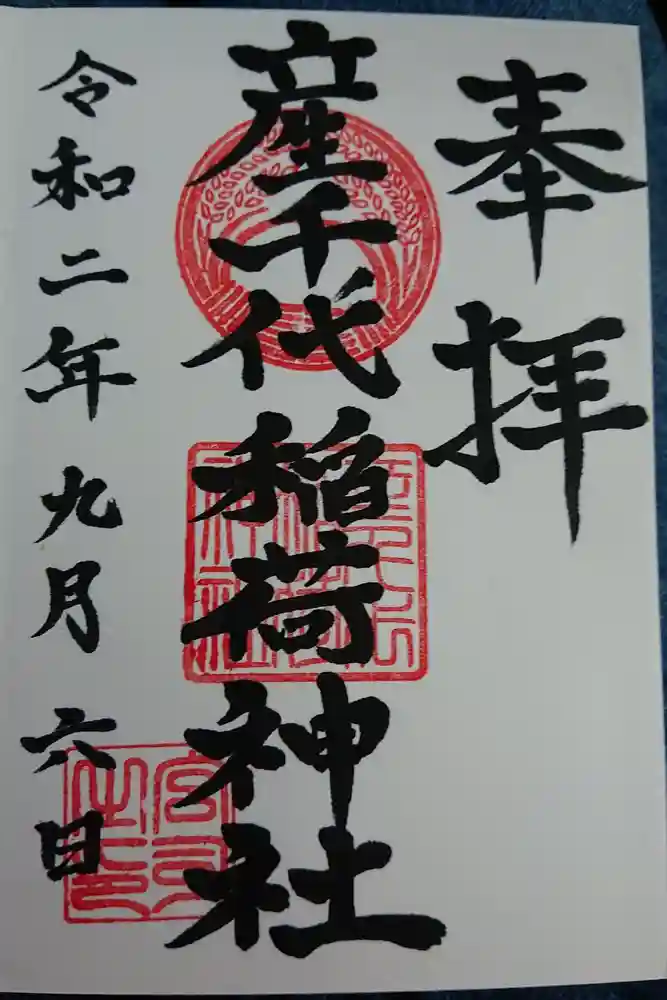 奉拝
産千代稲荷神社
令和二年九月六日
宮司之印